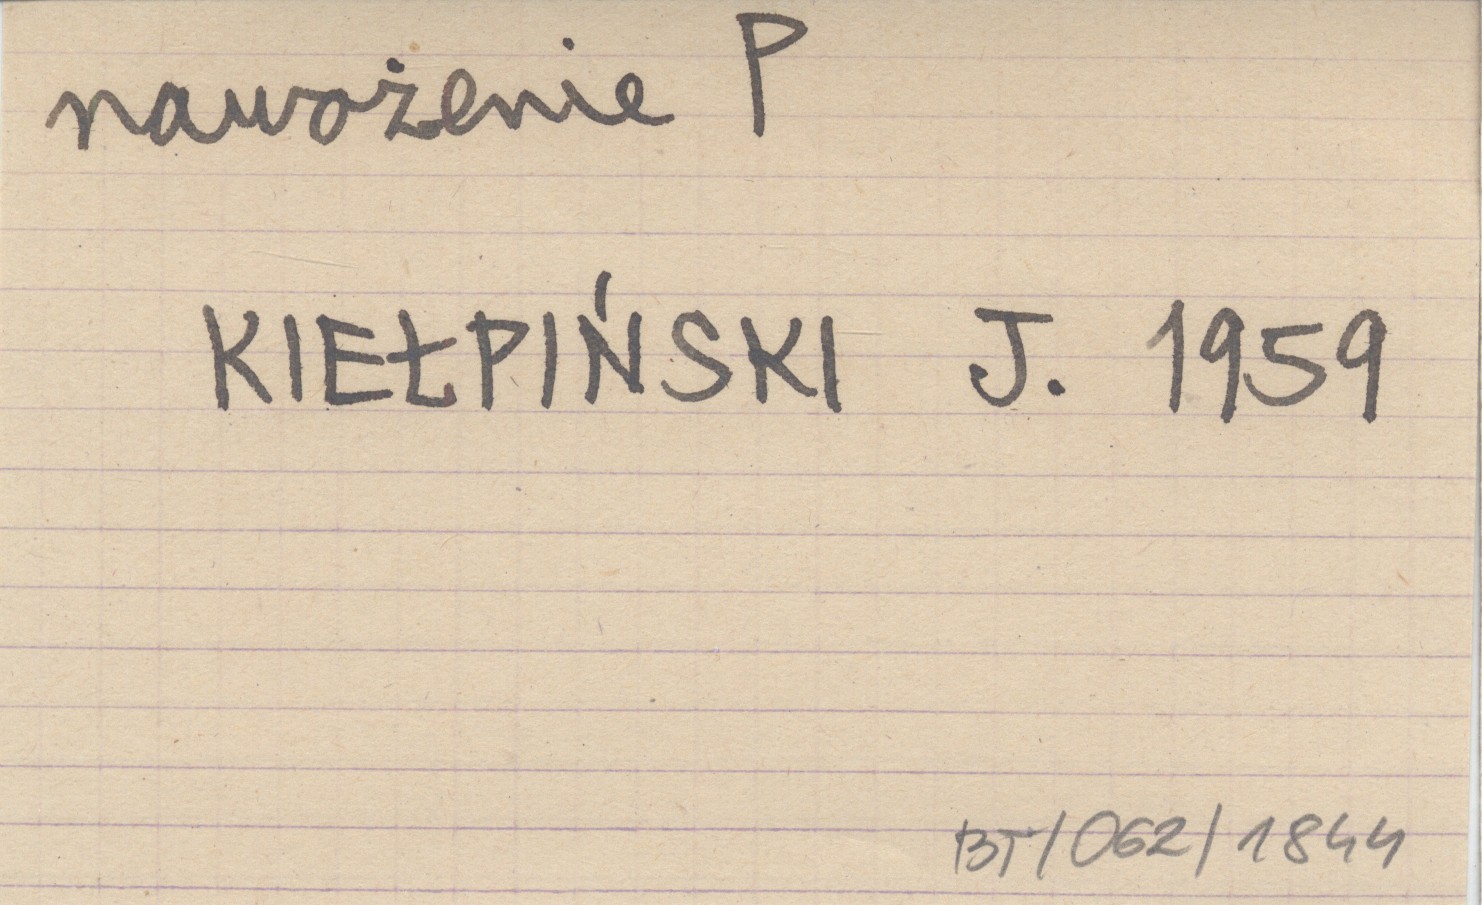 nawożenie P
KIEŁPIŃSKI J. 1959
BT/062/1844